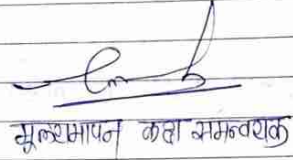 मूल्यमापन कक्ष समन्वयक